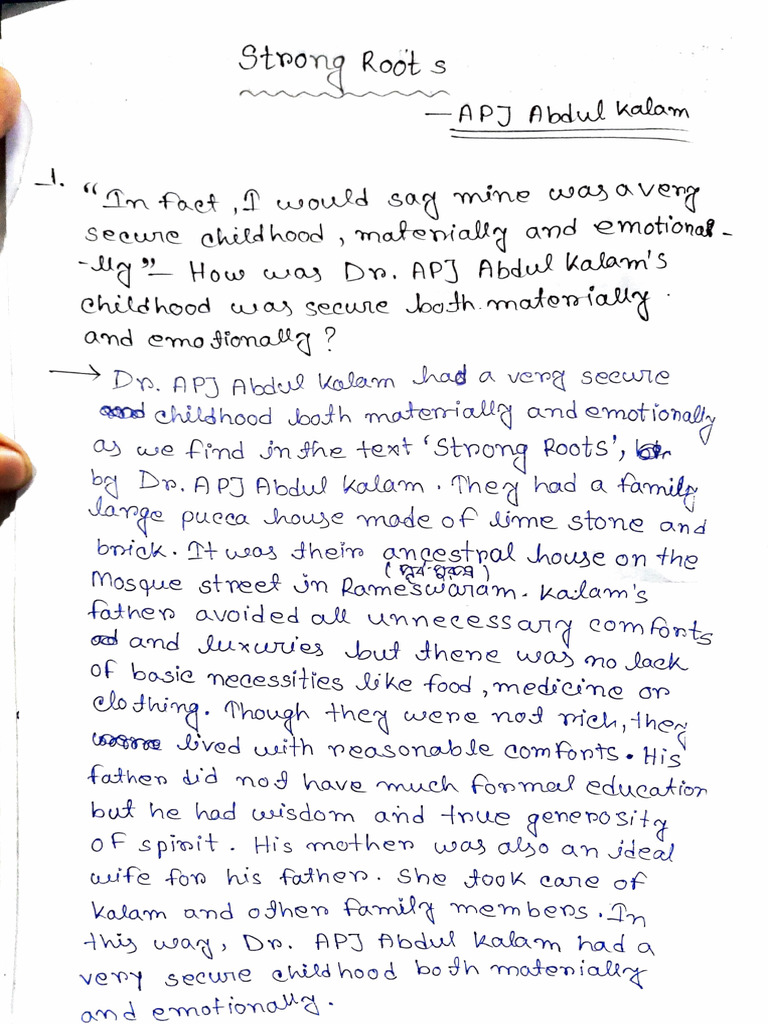 Strong Roots
— APJ Abdul Kalam
1. "In fact, I would say mine was a very
secure childhood, materially and emotional-
-lly" — How was Dr. APJ Abdul Kalam's
childhood was secure both materially
and emotionally?
→ Dr. APJ Abdul Kalam had a very secure
childhood both materially and emotionally
as we find in the text 'Strong Roots',
by Dr. APJ Abdul Kalam. They had a family
large pucca house made of lime stone and
brick. It was their ancestral house on the
(পূর্ব-পুরুষ)
Mosque street in Rameswaram. Kalam's
father avoided all unnecessary comforts
and luxuries but there was no lack
of basic necessities like food, medicine or
clothing. Though they were not rich, they
lived with reasonable comforts. His
father did not have much formal education
but he had wisdom and true generosity
of spirit. His mother was also an ideal
wife for his father. She took care of
Kalam and other family members. In
this way, Dr. APJ Abdul Kalam had a
very secure childhood both materially
and emotionally.